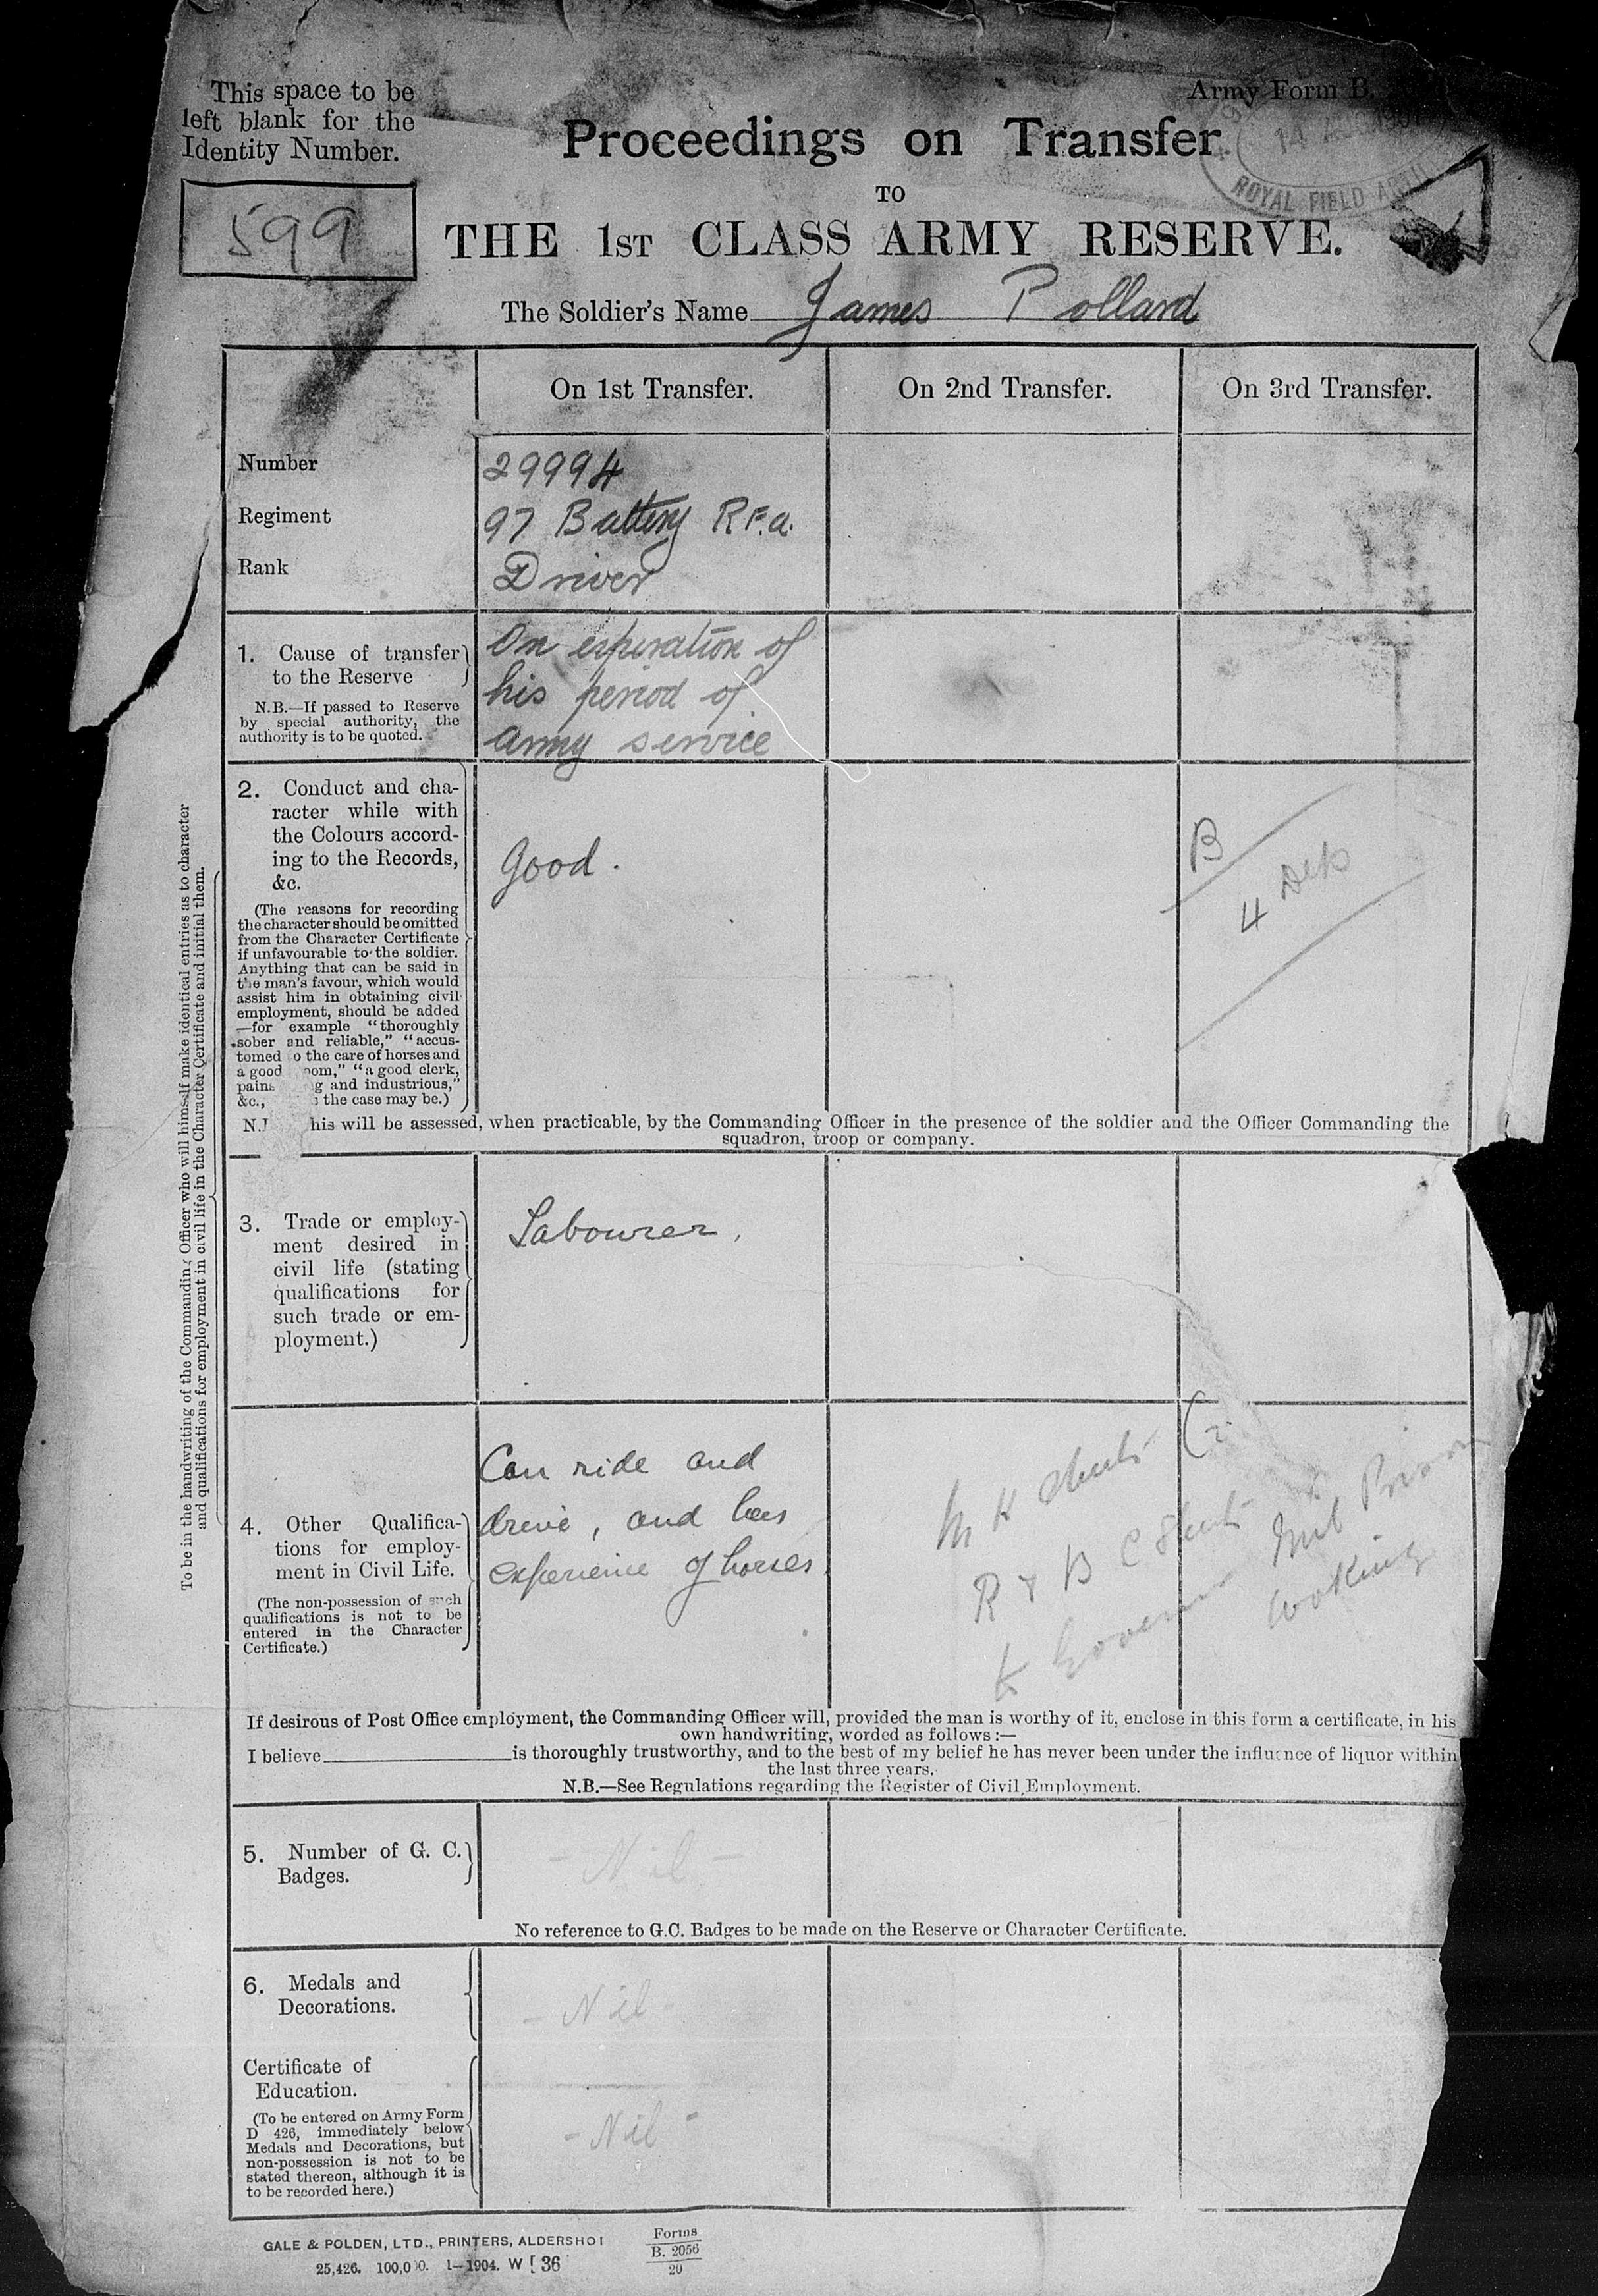 This space to be
left blank for the
Identity Number.
599
Army Form B.
14 AUG 190
ROYAL FIELD ARTI
Proceedings on Transfer
TO
THE 1ST CLASS ARMY RESERVE.
The Soldier's Name James Pollard
On 1st Transfer. On 2nd Transfer. On 3rd Transfer.
Number 29994
Regiment 97 Battery R.F.a.
Rank Driver
1. Cause of transfer
to the Reserve
N.B.—If passed to Reserve
by special authority, the
authority is to be quoted.
On expiration of
his period of
army service
2. Conduct and cha-
racter while with
the Colours accord-
ing to the Records,
&c.
(The reasons for recording
the character should be omitted
from the Character Certificate
if unfavourable to the soldier.
Anything that can be said in
the man's favour, which would
assist him in obtaining civil
employment, should be added
—for example "thoroughly
sober and reliable," "accus-
tomed o the care of horses and
a good oom," "a good clerk,
pains g and industrious,"
&c., the case may be.)
Good.
B
4
N. his will be assessed, when practicable, by the Commanding Officer in the presence of the soldier and the Officer Commanding the
squadron, troop or company.
3. Trade or employ-
ment desired in
civil life (stating
qualifications for
such trade or em-
ployment.)
Labourer.
4. Other Qualifica-
tions for employ-
ment in Civil Life.
(The non-possession of such
qualifications is not to be
entered in the Character
Certificate.)
Can ride and
drive, and has
experience of horses.
M H Sheets
R & B C Sheets
to Governor Mil Prison
Woking
If desirous of Post Office employment, the Commanding Officer will, provided the man is worthy of it, enclose in this form a certificate, in his
own handwriting, worded as follows :—
I believe is thoroughly trustworthy, and to the best of my belief he has never been under the influence of liquor within
the last three years.
N.B.—See Regulations regarding the Register of Civil Employment.
5. Number of G. C.
Badges.
- Nil -
No reference to G.C. Badges to be made on the Reserve or Character Certificate.
6. Medals and
Decorations.
- Nil -
Certificate of
Education.
(To be entered on Army Form
D 426, immediately below
Medals and Decorations, but
non-possession is not to be
stated thereon, although it is
to be recorded here.)
- Nil -
To be in the handwriting of the Commanding Officer who will himself make identical entries as to character
and qualifications for employment in civil life in the Character Certificate and initial them.
GALE & POLDEN, LTD., PRINTERS, ALDERSHOT
25,426. 100,000. 1—1904. W 36
Forms
B. 2056
20